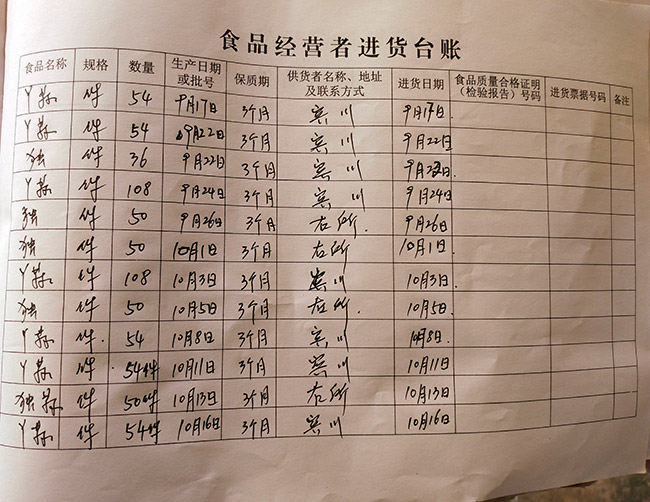 食品经营者进货台账
食品名称 规格 数量 生产日期或批号 保质期 供货者名称、地址及联系方式 进货日期 食品质量合格证明（检验报告）号码 进货票据号码 备注
丫蒜 件 54 9月17日 3个月 宾川 9月17日.
丫蒜 件 54 9月22日 3个月 宾川 9月22日
独 件 36 9月22日 3个月 宾川 9月22日.
丫蒜 件 108 9月24日 3个月 宾川 9月24日
独 件 50 9月26日 3个月 右所. 9月26日
独 件 50 10月1日 3个月 右所 10月1日.
丫蒜 件 108 10月3日 3个月 宾川 10月3日.
独 件 50 10月5日 3个月 右所. 10月5日.
丫蒜 件. 54 10月8日 3个月 宾川 10月8日.
丫蒜 件. 54件 10月11日 3个月 宾川 10月11日
独蒜 件 50件 10月13日 3个月 右所 10月13日
丫蒜 件 54件 10月16日 3个月 宾川 10月16日